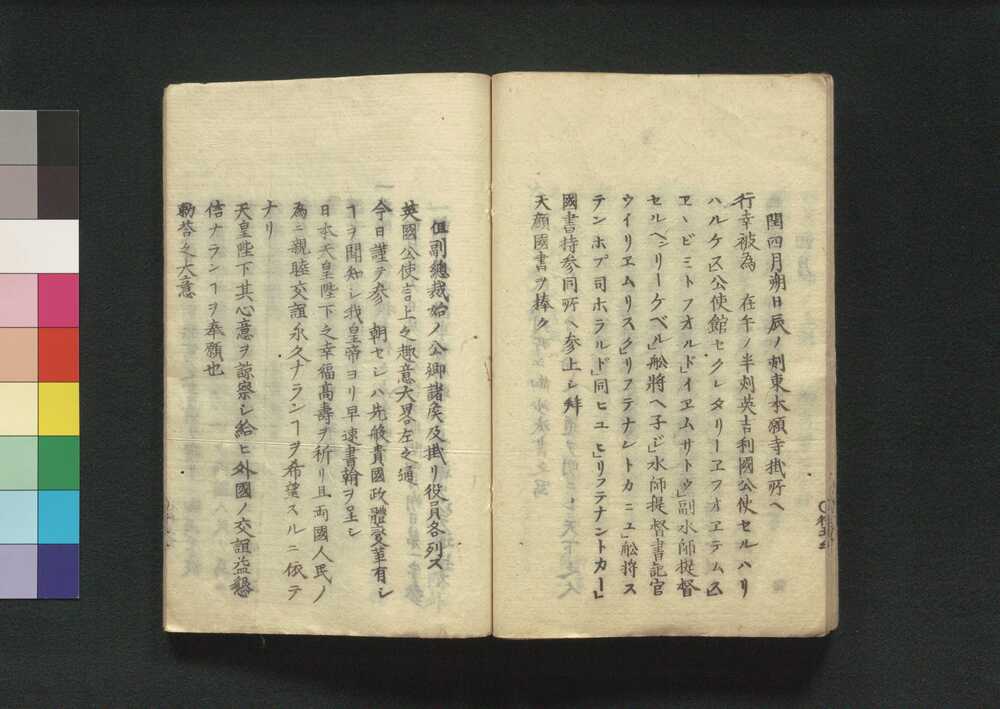 閏四月朔日辰ノ刻東本願寺掛所ヘ
行幸被為　在午ノ半刻英吉利國公使セルハリ
ハルケス公使館セクレタリーエフオエテムス
エ、ビミトフオルド」イエムサトウ」副水師提督
セルヘンリーケベル」舩將ヘ子ジ」水師提督書記官
ウイリエムリスク」リフテナントカニユ」舩将ス
テンホプ司ホラルド」同ヒユヒ」リフテナントカー」
國書持参同所ヘ参上シ拜
天顔國書ヲ捧ク
但副總裁始ノ公卿諸侯及掛リ役員各列ス
英國公使言上之趣意大畧左之通
今日謹テ参　朝セシハ先般貴國政體變革有シ
ヿヲ聞知シ我皇帝ヨリ早速書翰ヲ呈シ
日本天皇陛下之幸福高壽ヲ祈リ且両國人民ノ
為ニ親睦交誼永久ナランヿヲ希望スルニ依テ
ナリ
天皇陛下其心意ヲ諒察シ給ヒ外國ノ交誼益懇
信ナランヿヲ奉願也
勅荅之大意